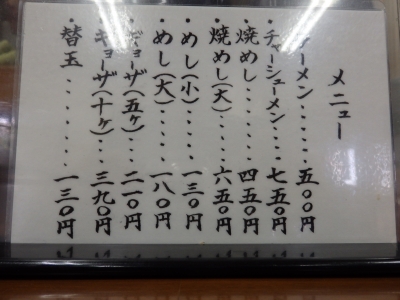 メニュー
・ラーメン・・・・・五〇〇円
・チャーシューメン・・・七五〇円
・焼めし・・・・・四五〇円
・焼めし(大)・・・・六五〇円
・めし(小)・・・・・一三〇円
・めし(大)・・・・・一八〇円
・ギョーザ(五ヶ)・・・二一〇円
・ギョーザ(十ヶ)・・・三九〇円
・替玉・・・・・・一三〇円